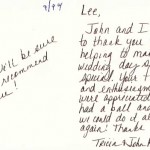 9/94
Lee,
John and I
to thank you
helping to ma
wedding day s
special. Your
and enthusiasm
were appreciated
had a ball and
we could do it al
again! Thanks
Tricia & John
ll be sure
recommend